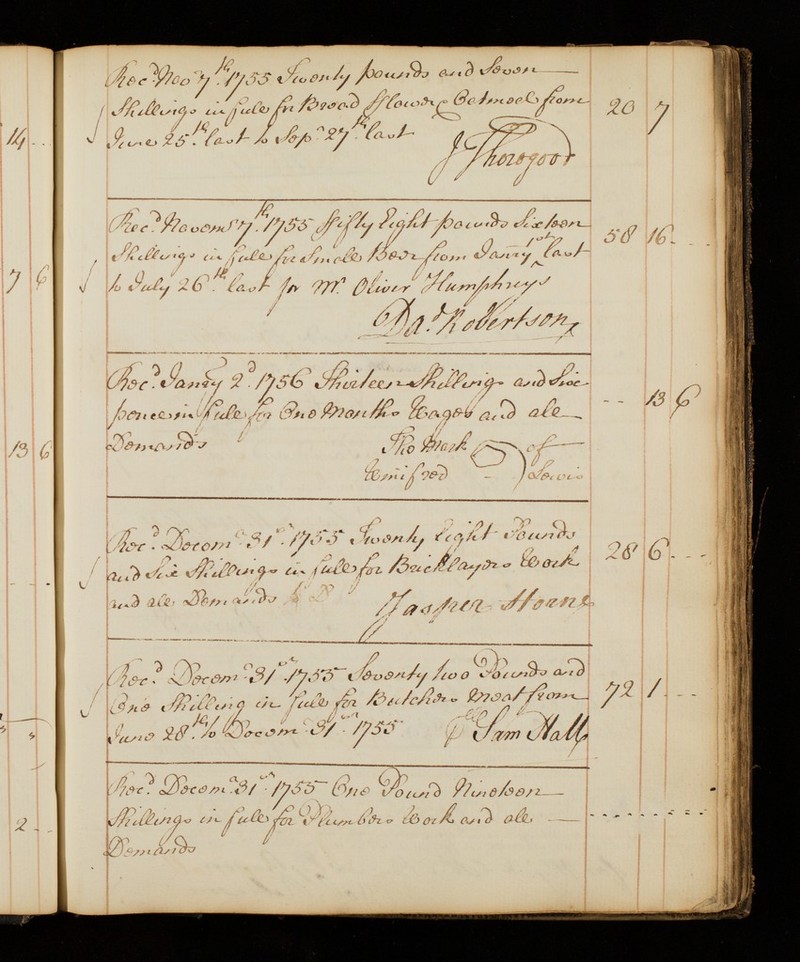 14 - -
7 6
13 6
- - -
2 - -
Recd. Novr. 7th. 1755 Twenty pounds and Seven
Shillings in full for Bread Flower & Oatmeal from
June 25th. last to Sepr. 27th. last
J Thorogood
20 7
Recd. Novemr. 7th. 1755 Fifty Eight pounds Sixteen
Shillings in full for Small Beer from Janry. 1st last
to July 26th. last for Mr. Oliver Humphreys
Dad. Robertson
58 16 - - -
Recd. Janry 2d. 1756 Thirteen Shillings and Six
pence in full for One Months Wages and all
Demands
Tho Mark of
Winifred Lewis
- - 13 6
Recd. Decemr. 31st. 1755 Twenty Eight Pounds
and Six Shillings in full for Bricklayers Work
and all Demands
Jasper Horne
28 6 - - -
Recd. Decemr. 31st. 1755 Seventy two Pounds and
One Shilling in full for Butchers Meat from
June 28th. to Decemr. 31st. 1755
Sam Hall
72 1 - - -
Recd. Decemr. 31st. 1755 One Pound Nineteen
Shillings in full for Plumbers Work and all
Demands